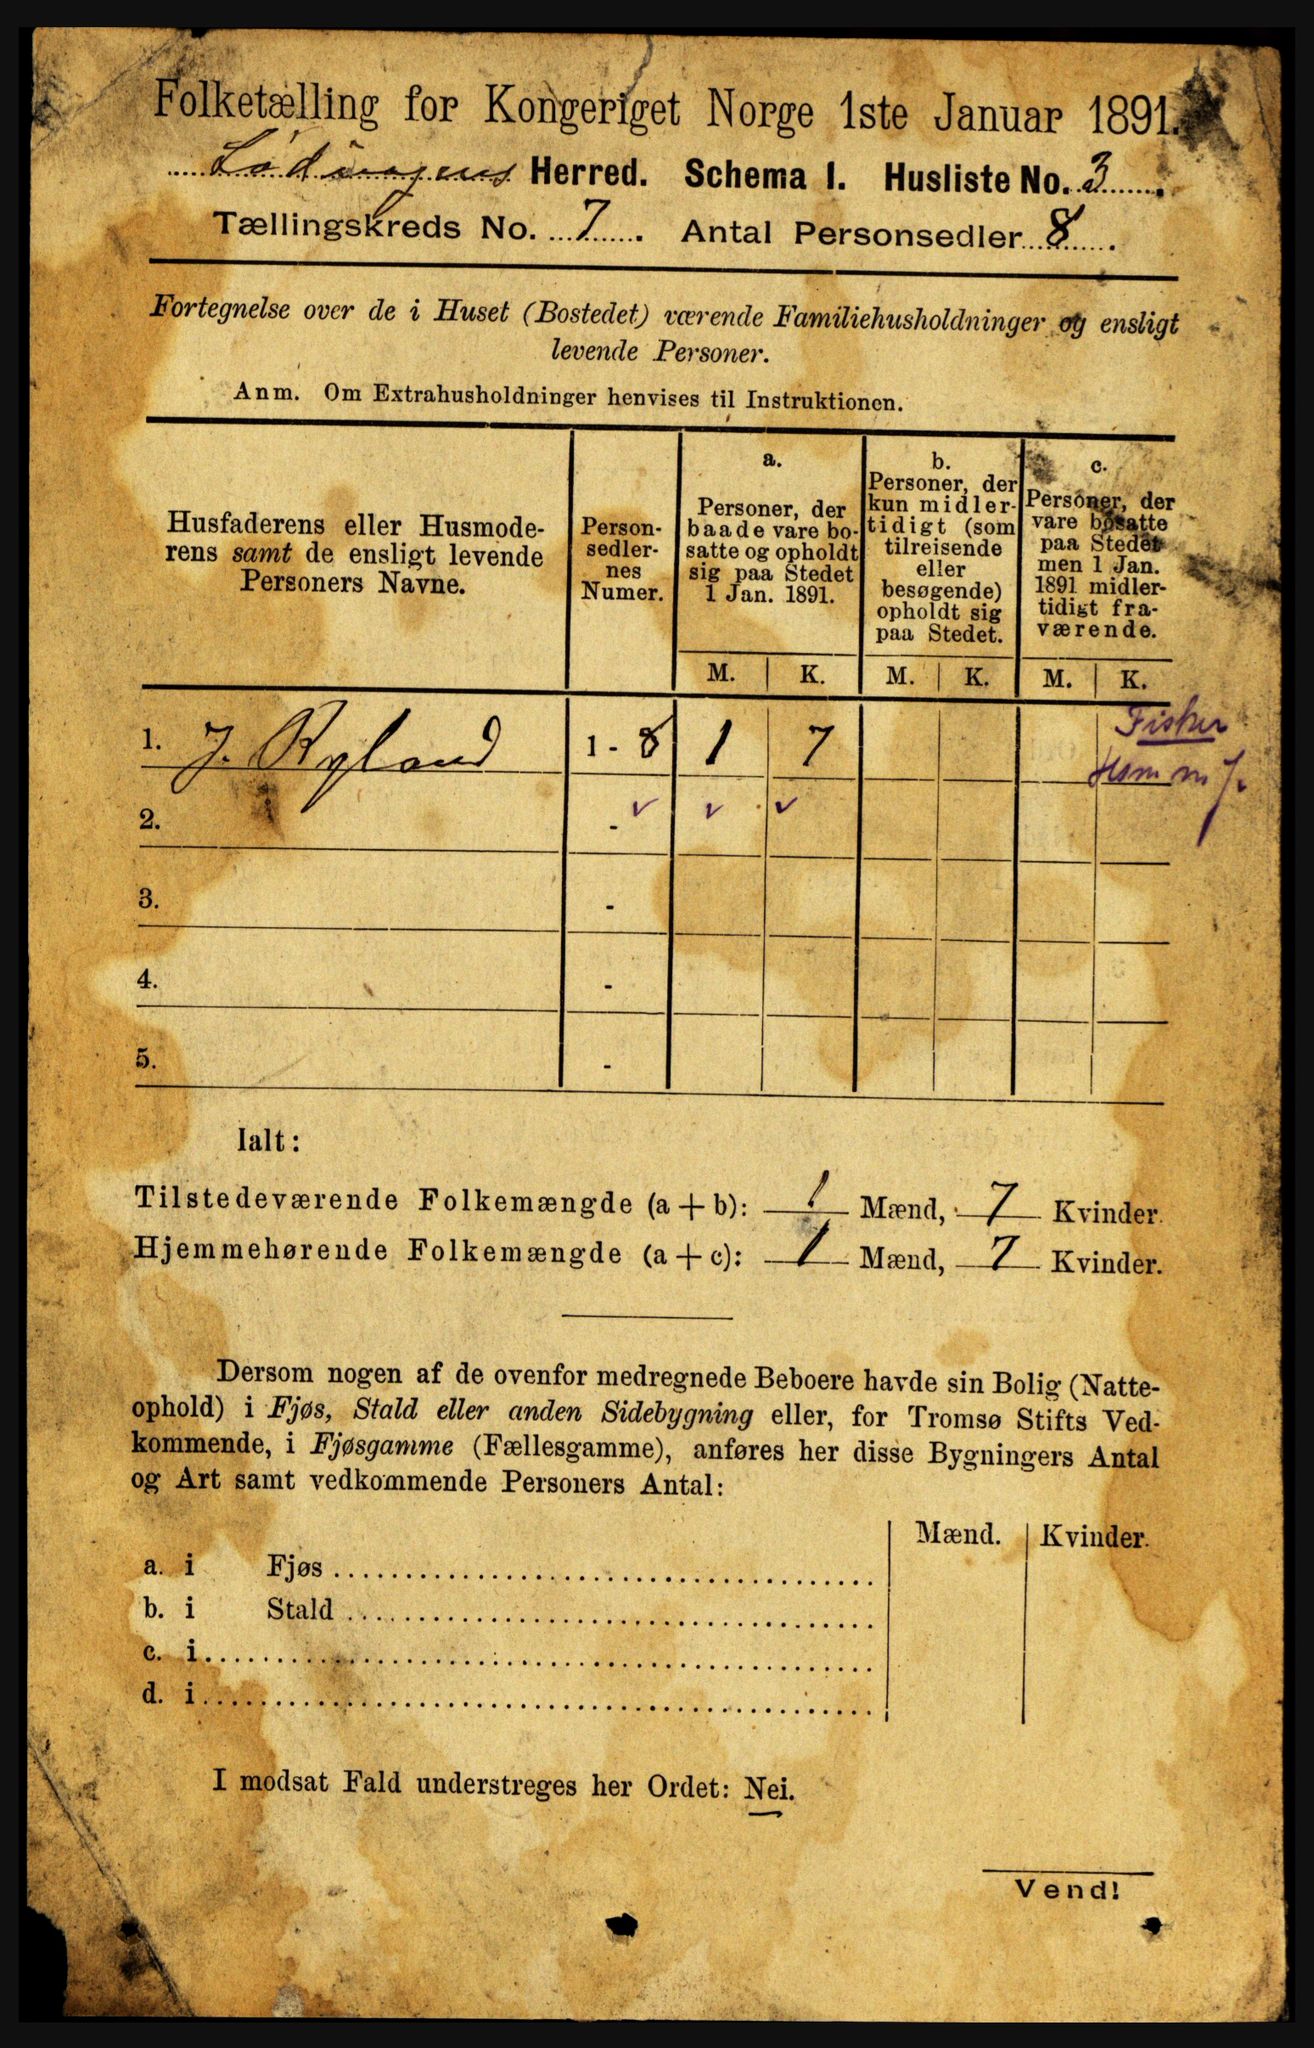 Folketælling for Kongeriget Norge 1ste Januar 1891.
Lødingens Herred. Schema I. Husliste No. 3.
Tællingskreds No. 7. Antal Personsedler 8.
Fortegnelse over de i Huset (Bostedet) værende Familiehusholdninger og ensligt
levende Personer.
Anm. Om Extrahusholdninger henvises til Instruktionen.
Husfaderens eller Husmode-
rens samt de ensligt levende
Personers Navne.
Person-
sedler-
nes
Numer.
a.
Personer, der
baade vare bo-
satte og opholdt
sig paa Stedet
1 Jan. 1891.
b.
Personer, der
kun midler-
tidigt (som
tilreisende
eller
besøgende)
opholdt sig
paa Stedet.
c.
Personer, der
vare bosatte
paa Stedet
men 1 Jan.
1891 midler-
tidigt fra-
værende.
M. K. M. K. M. K.
1. J. Ryland 1 - 8 1 7 Fisker
2. -
3. -
4. -
5. -
Ialt:
Tilstedeværende Folkemængde (a + b): 1 Mænd, 7 Kvinder.
Hjemmehørende Folkemængde (a + c): 1 Mænd, 7 Kvinder.
Dersom nogen af de ovenfor medregnede Beboere havde sin Bolig (Natte-
ophold) i Fjøs, Stald eller anden Sidebygning eller, for Tromsø Stifts Ved-
kommende, i Fjøsgamme (Fællesgamme), anføres her disse Bygningers Antal
og Art samt vedkommende Personers Antal:
Mænd. Kvinder.
a. i Fjøs
b. i Stald
c. i
d. i
I modsat Fald understreges her Ordet: Nei.
Vend!